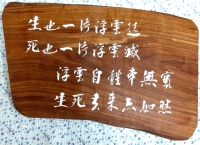 生也一片浮雲起
死也一片浮雲滅
浮雲自體本無實
生死去來亦如然